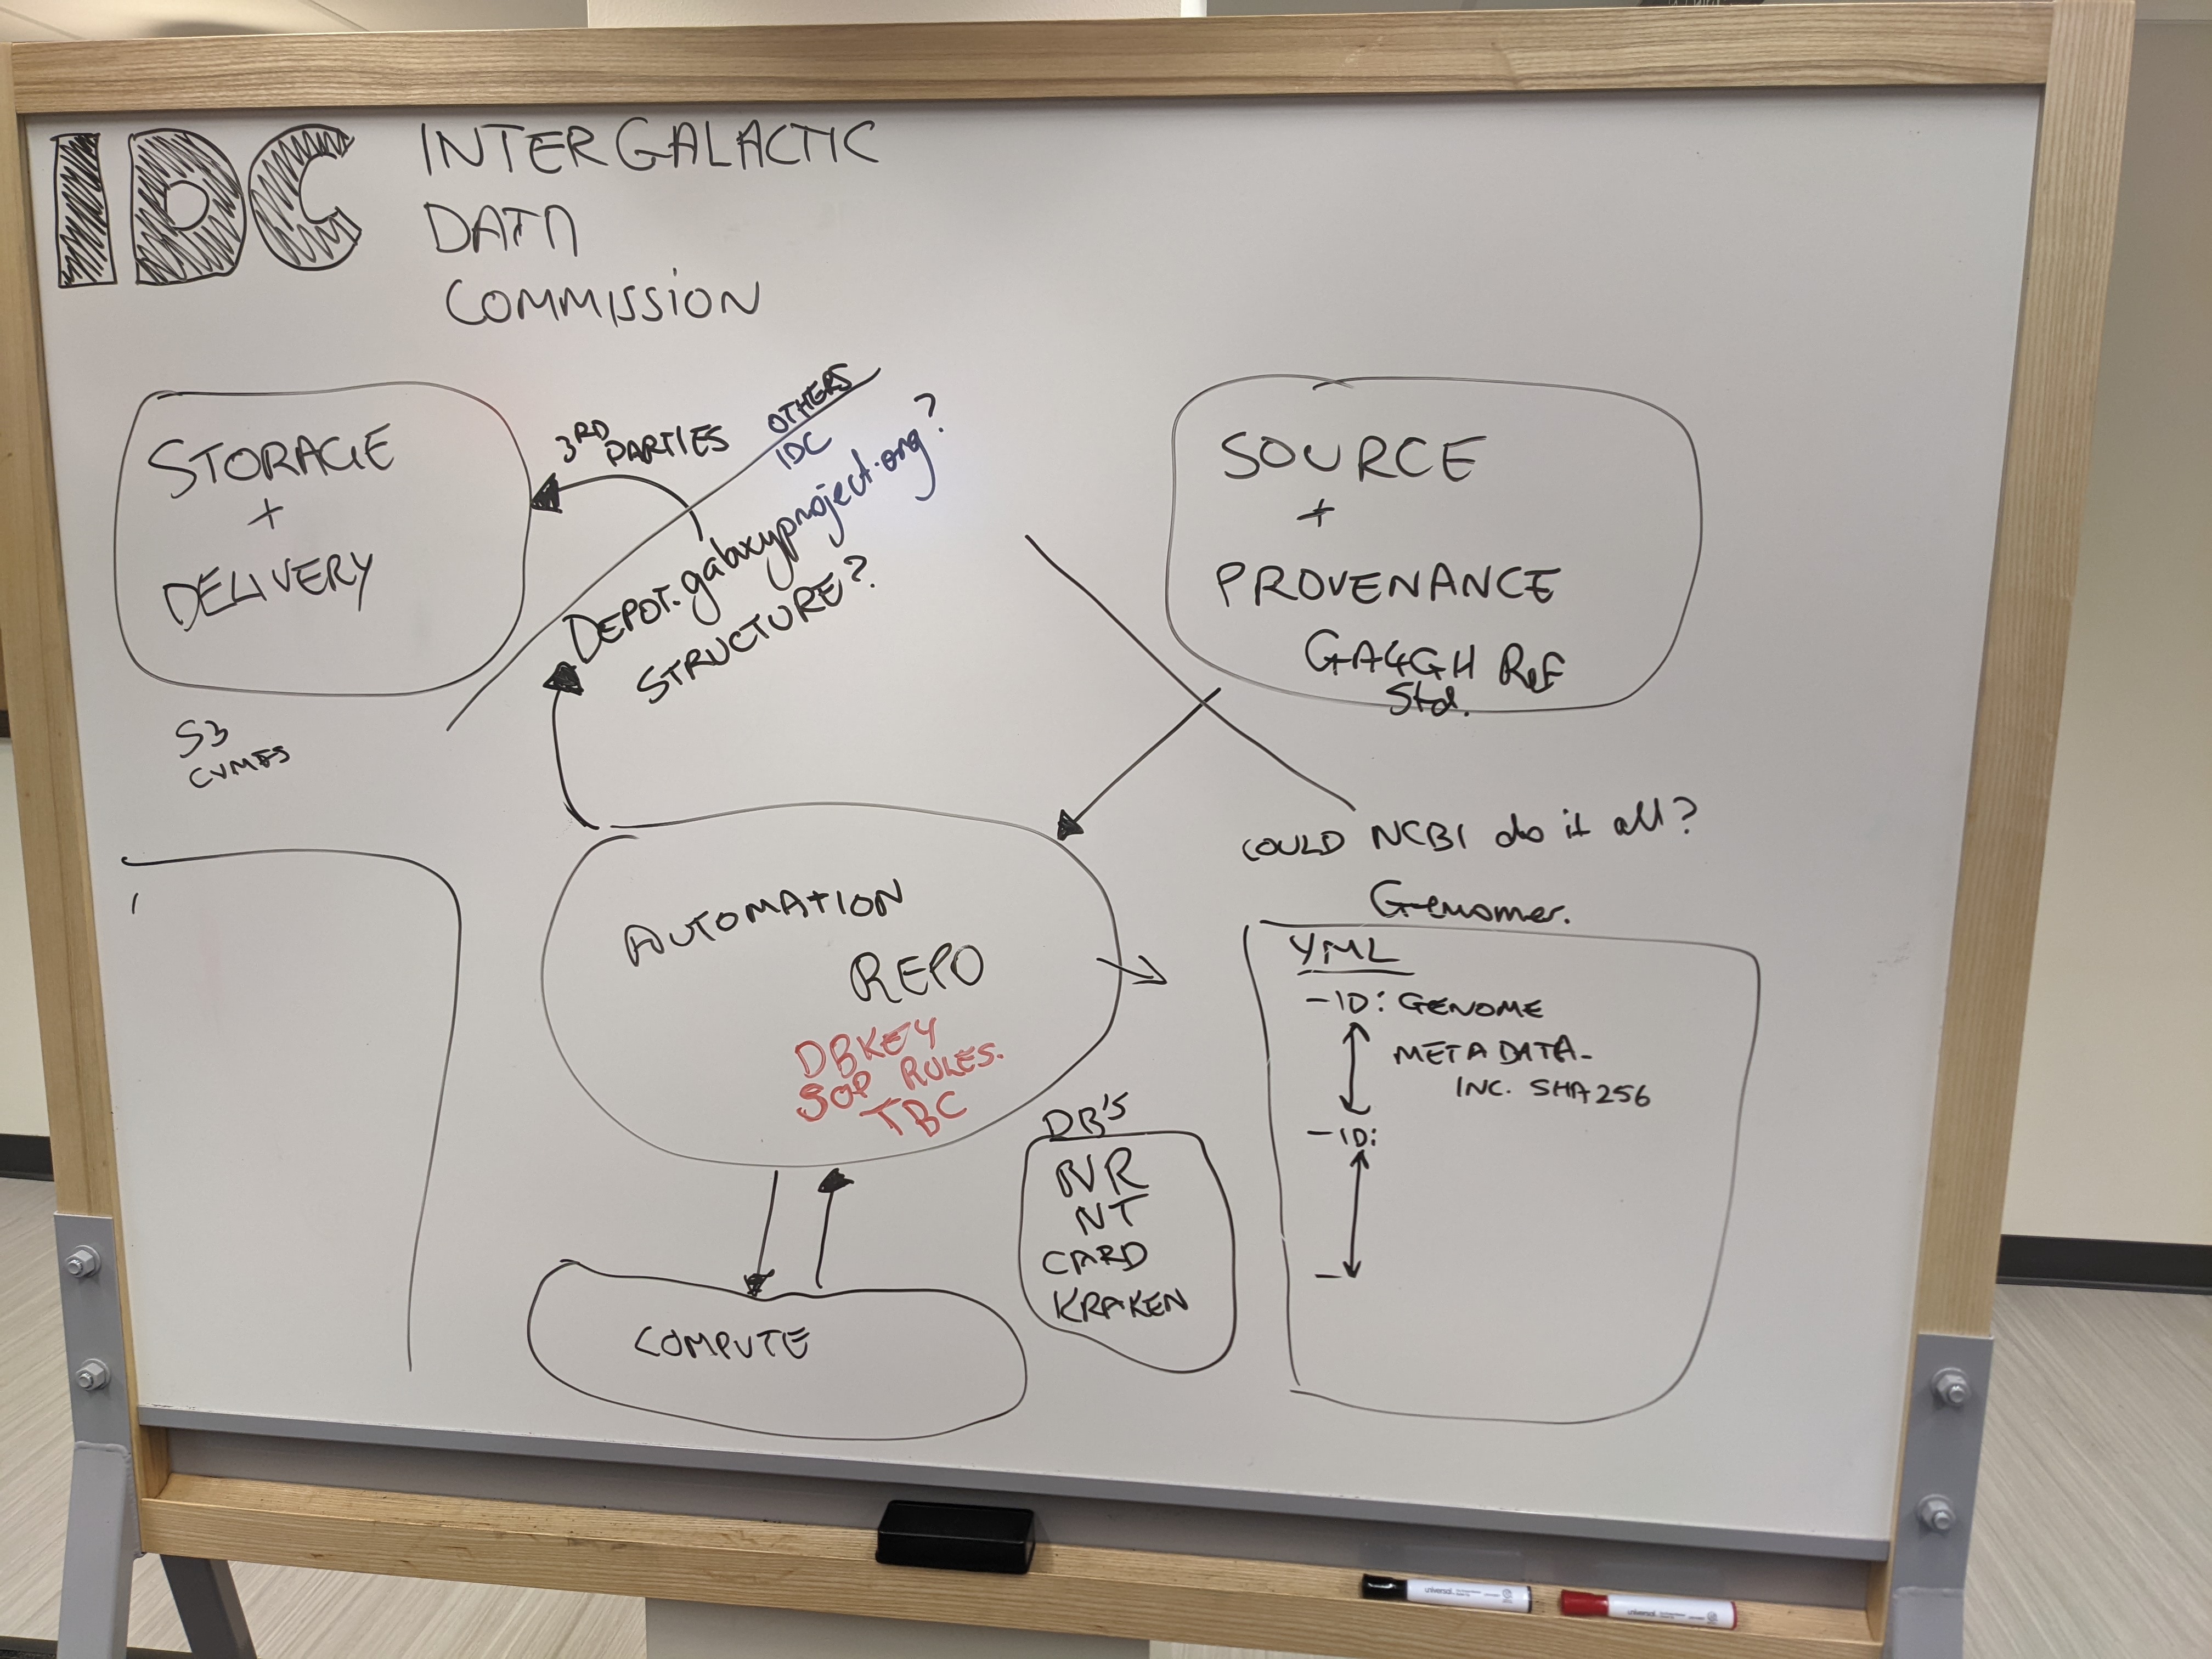 IDC
INTERGALACTIC
DATA
COMMISSION
STORAGE
+
DELIVERY
S3
CVMFS
3RD
PARTIES
OTHERS
IDC
DEPOT.galaxyproject.org?
STRUCTURE?
SOURCE
+
PROVENANCE
GA4GH REF
Std.
COULD NCBI do it all?
AUTOMATION
REPO
DBKEY
SOP RULES.
TBC
COMPUTE
DB'S
NR
NT
CARD
KRAKEN
Genomes.
YML
- ID: GENOME
METADATA-
INC. SHA256
- ID:
-
universal
universal